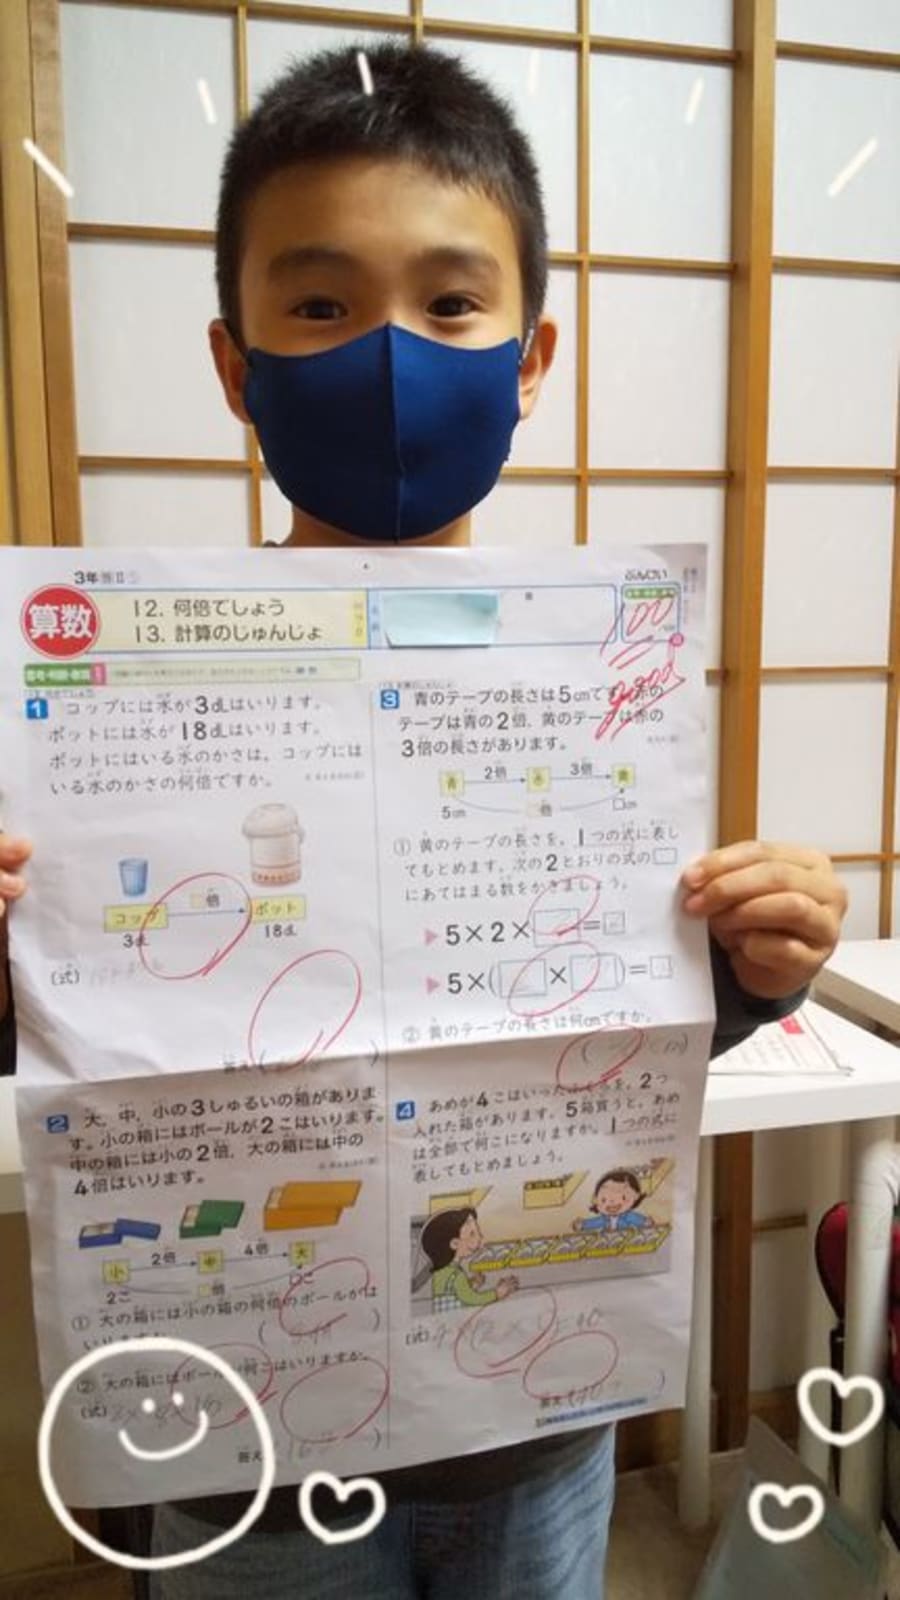 3年
ぶんけい
算数
12. 何倍でしょう
13. 計算のじゅんじょ
100
1 コップには水が3dLはいります。
ポットには水が18dLはいります。
ポットにはいる水のかさは，コップには
いる水のかさの何倍ですか。
倍
コップ
ポット
3dL
18dL
(式)
答え( )
2 大，中，小の3しゅるいの箱がありま
す。小の箱にはボールが2こはいります。
中の箱には小の2倍，大の箱には中の
4倍はいります。
2倍
4倍
小
中
大
2こ
倍
□こ
① 大の箱には小の箱の何倍のボールがは
いりますか。
② 大の箱にはボールは何こはいりますか。
(式)
答え( )
3 青のテープの長さは5cmです。赤の
テープは青の2倍，黄のテープは赤の
3倍の長さがあります。
青
2倍
赤
3倍
黄
5cm
倍
□cm
① 黄のテープの長さを，1つの式に表し
てもとめます。次の2とおりの式の□
にあてはまる数をかきましょう。
▶ 5×2×□=□
▶ 5×(□×□)=□
② 黄のテープの長さは何cmですか。
4 あめが4こはいったふくろを，2つ
入れた箱があります。5箱買うと，あめ
は全部で何こになりますか。1つの式に
表してもとめましょう。
(式)
答え(40 )